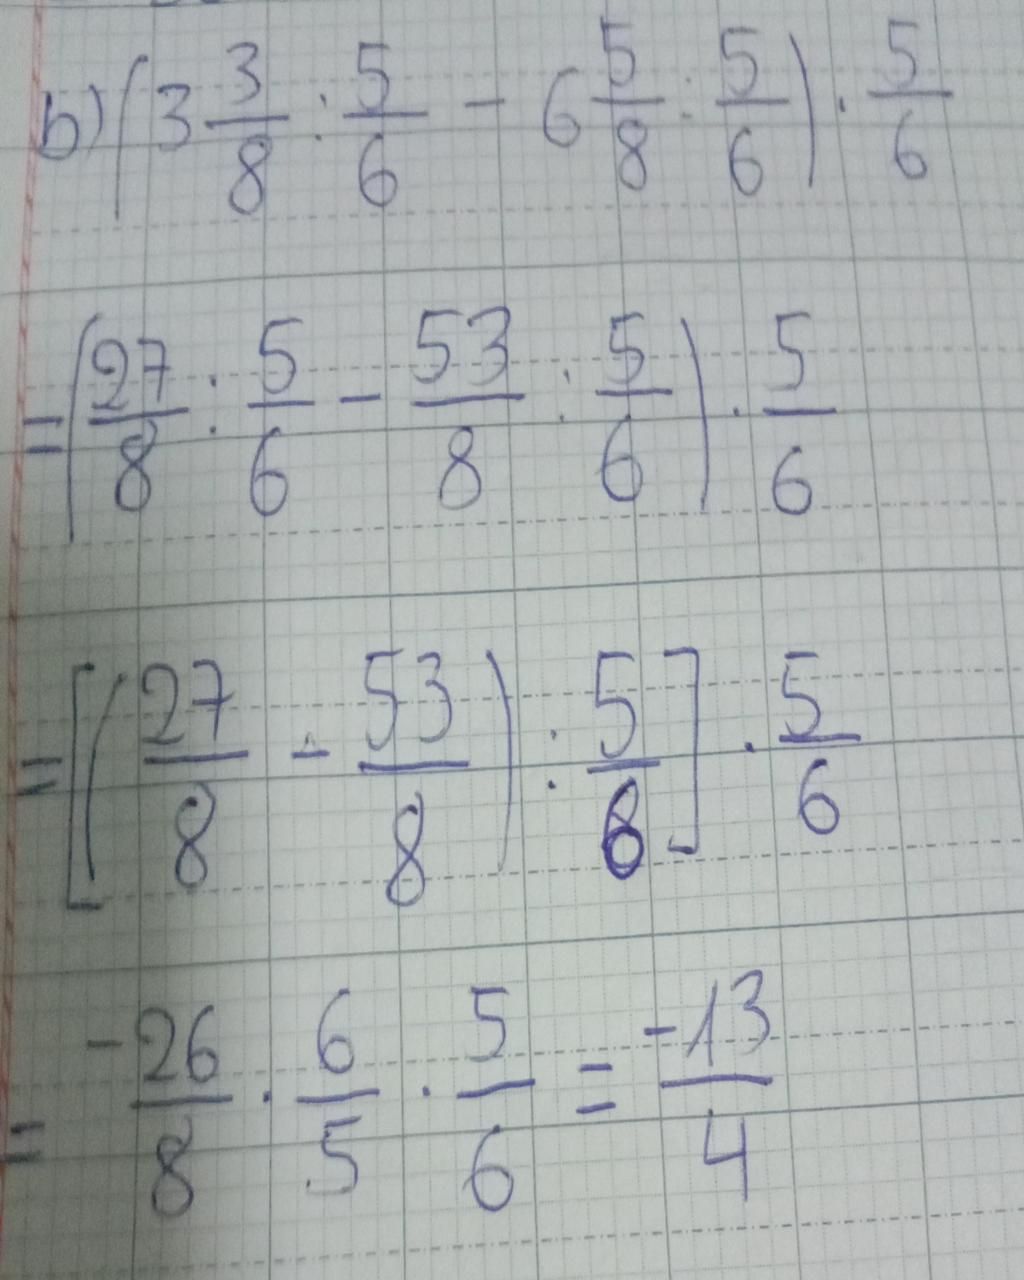 b) (3 3/8 : 5/6 - 6 5/8 : 5/6) . 5/6
= (27/8 : 5/6 - 53/8 : 5/6) . 5/6
= [(27/8 - 53/8) : 5/6] . 5/6
= -26/8 . 6/5 . 5/6 = -13/4